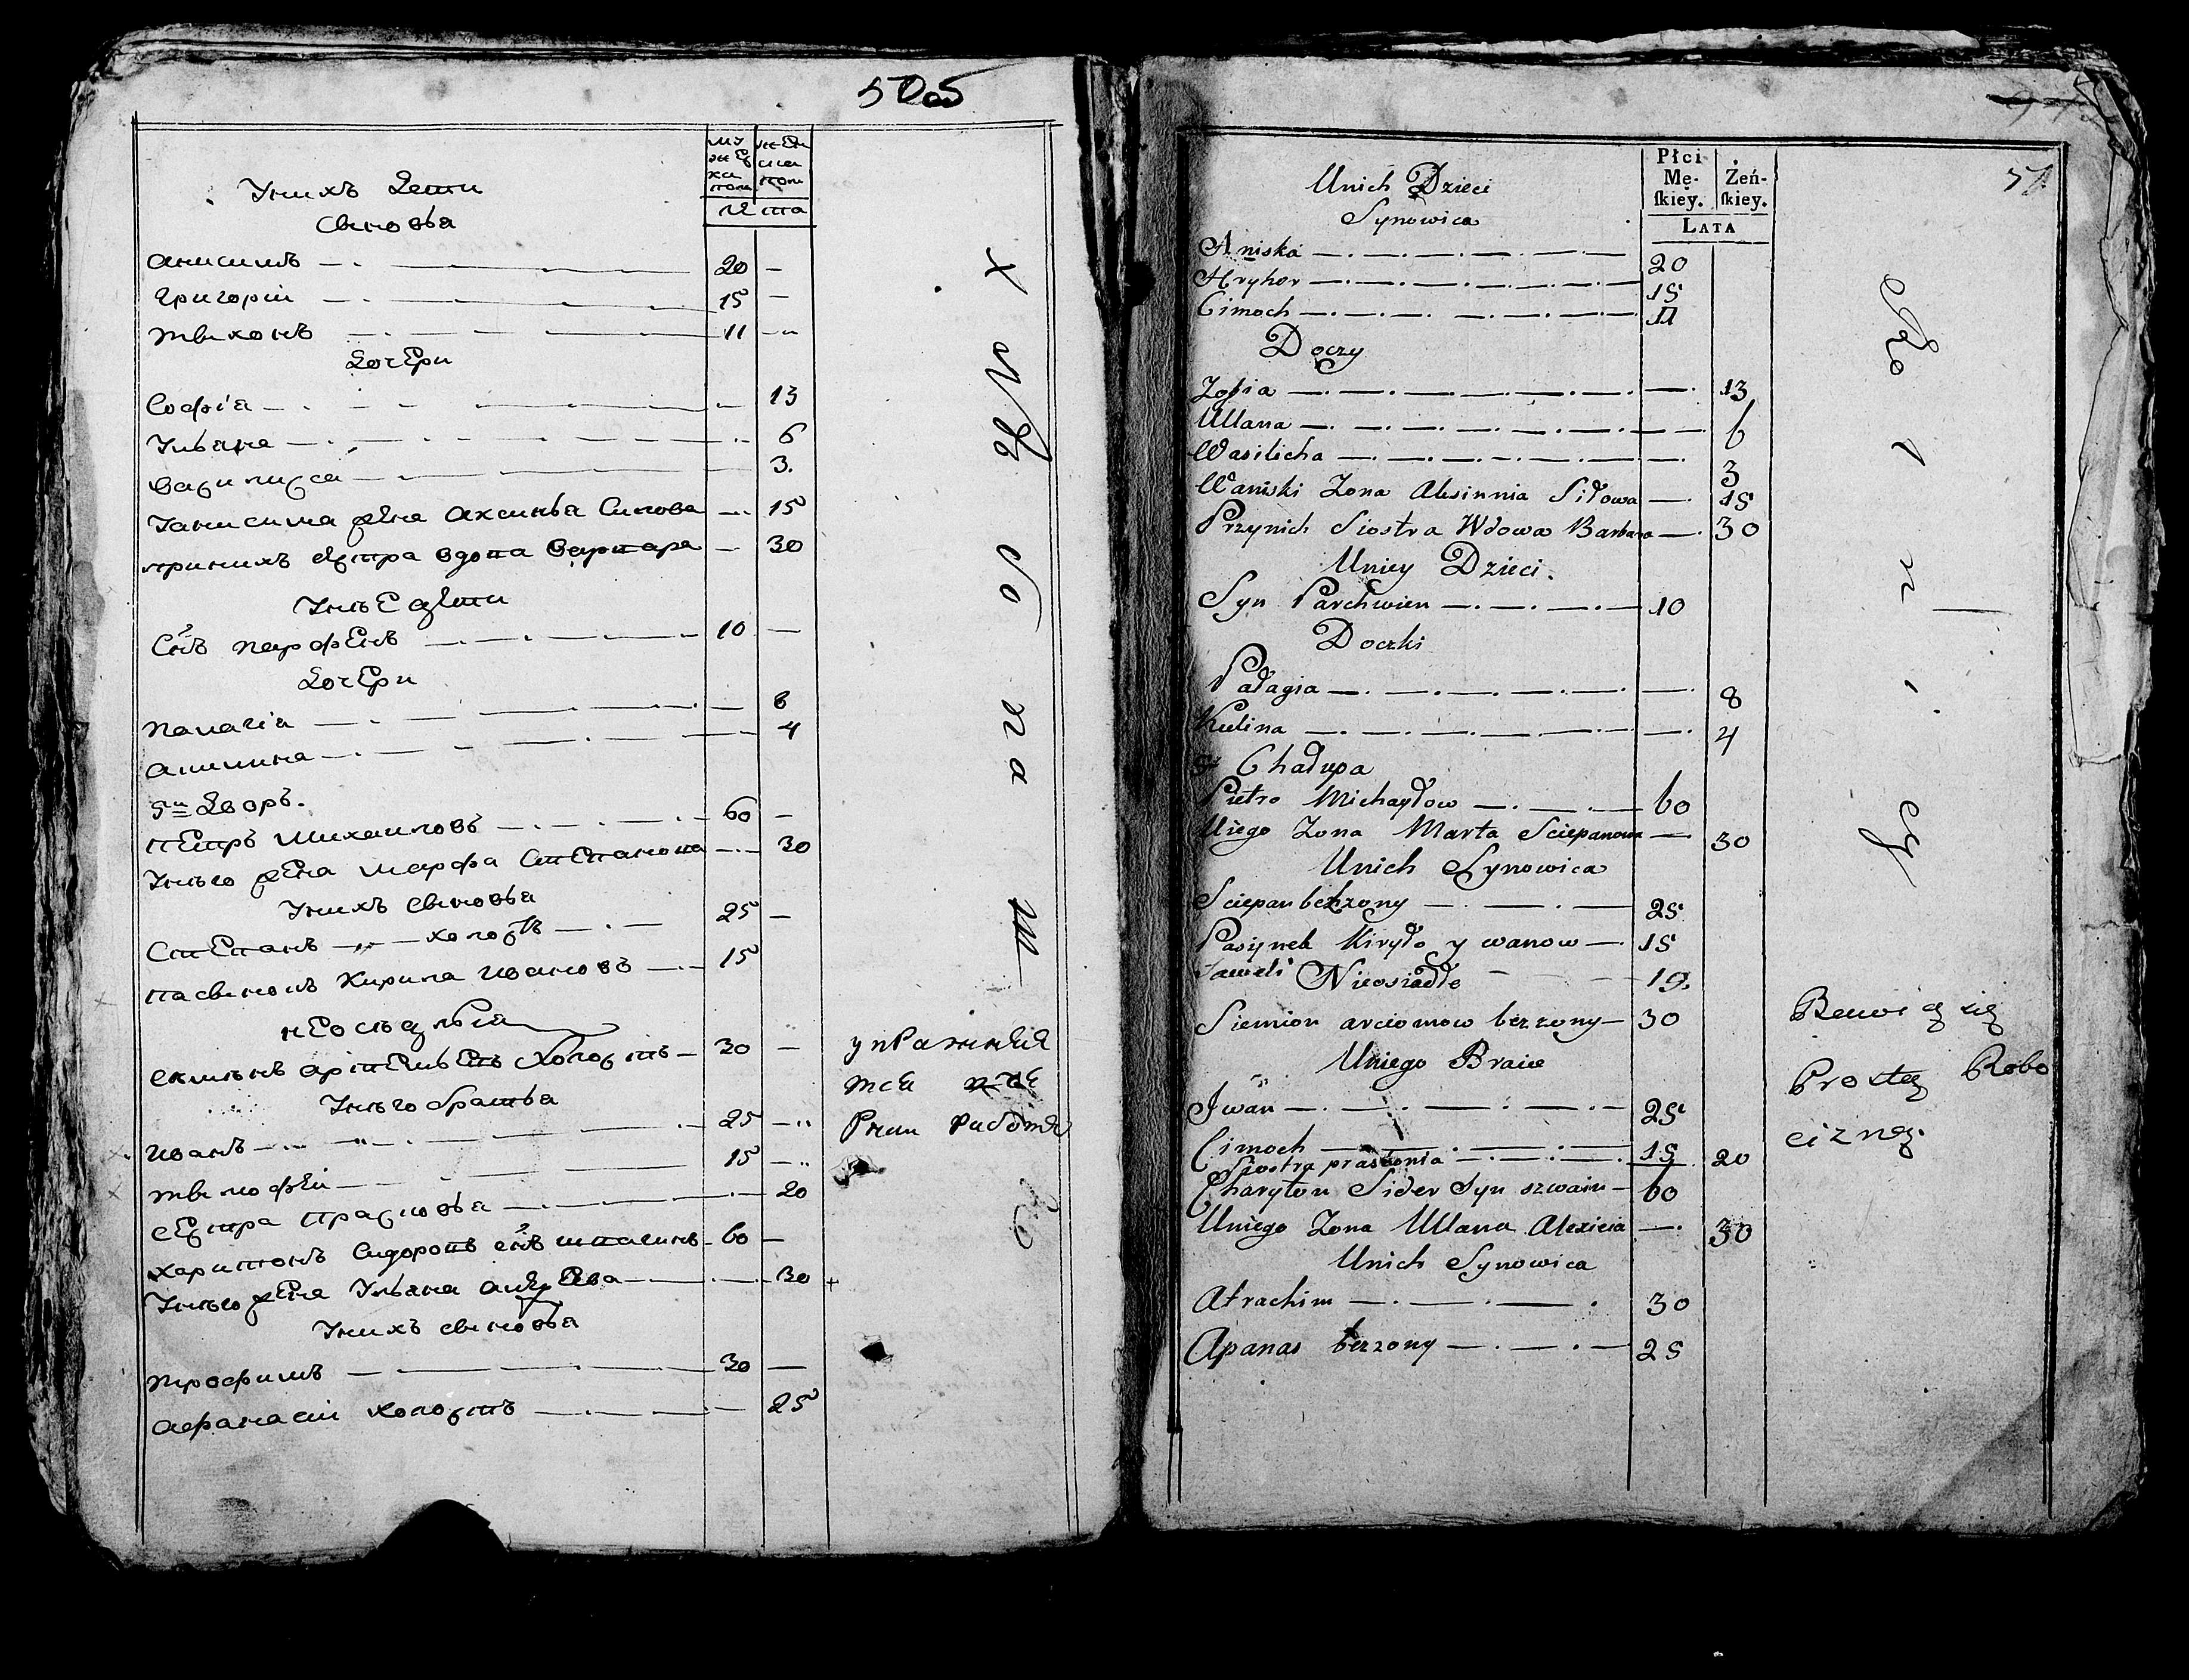 50об
му
жеб
ка
пол
жен
ска
пол
лета
Унихъ дети
Сыновья
анисимъ 20 —
григорiи 15 —
тыхонъ 11 —
дочери
Софiя — 13
Ульяна — 6
василиса — 3.
Уанисима жена аксинья Силова — 15
принихъ сестра вдова варвара — 30
Унье дети
Снъ парфенъ 10 —
дочери
палагiя — 8
акилина — 4
5й дворъ.
петръ михаиловъ 60 —
Унего жена марфа Степанова — 30
Унихъ сыновья
Степанъ холостъ 25 —
пасынокъ Кирила ивановъ 15
неоседлыя
семионъ артемьевъ холостъ 30 —
Унего братья
иванъ 25 —
тымофеи 15 —
сестра прасковья — 20
харитонъ Сидоровъ снъ 60 —
Унего жена Ульяна андреева — 30 +
Унихъ сыновья
трофимъ 30 —
афанасiи холостъ — 25
упражняе
тся
работа
51.
Unich Dzieci
Synowica
Płci
Mę-
skiey.
Żeń-
skiey.
LATA
Aniska 20
Hryhor 15
Cimoch 11
Doczy
Zofia — 13
Ullana — 6
Wasilicha — 3
Waniski Zona Alesinnia Siłowa — 15
Przynich Siostra Wdowa Barbara — 30
Uniey Dzieci.
Syn Parchwien 10
Doczki
Pałagia — 8
Kulina — 4
5 Chałupa
Pietro Michayłow 60
Uiego Zona Marta Sciepanowa — 30
Unich Synowica
Sciepan bezzony 25
Pasynek Kiryło ywanow 15
Saweli 19.
Nieosiadłe
Siemion arciomow bezzony 30
Uniego Bracie
Jwan 25
Cimoch 15
Siostra praskonia 20
Charyton Sider Syn szwain 60
Uniego Zona Ullana Alexieia — 30
Unich Synowica
Atrachim 30
Apanas bezzony 25
Bawią się
Prostą Robo
cizną.